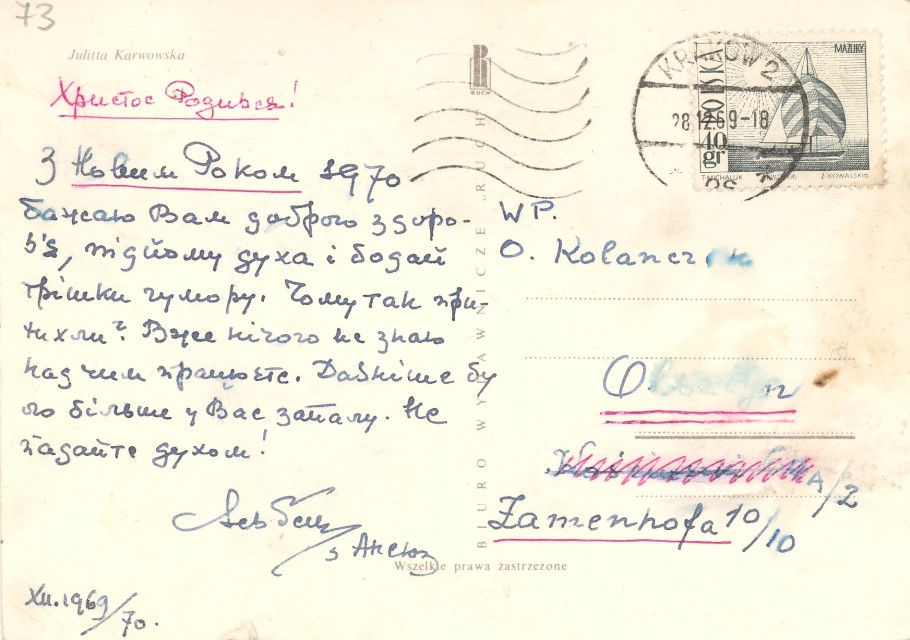 73
Julitta Karwowska
Христос Родився!
З Новим Роком 1970
бажаю Вам доброго здоро-
в'я, підйому духа і бодай
трішки гумору. Чому так при-
тихли? Вже нічого не знаю
над чим працюєте. Давніше бу
ло більше у Вас запалу. Не
падайте духом!
з
XII.1969/70.
RUCH
BIURO WYDAWNICZE „RUCH”
Wszelkie prawa zastrzeżone
KRAKÓW 2
28.12.69-18
MAZURY
POLSKA
40 gr
T.MICHALUK
Z.KOWALSKI
WP.
O. Kolanczuk
A/2
Zamenhofa 10/10